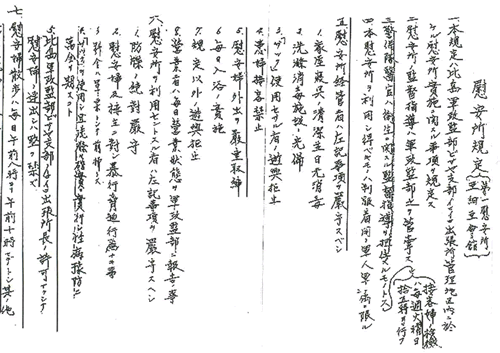 慰安所規定(第一慰安所
亜細亜会館)
一本規定ハ比島軍政監部ビサヤ支部イロイロ出張所管理地区内ニ於
ケル慰安所実施ニ関スル事項ヲ規定ス
二慰安所ノ監督指導ハ軍政監部之ヲ管掌ス
三警備隊医官ハ衛生ニ関スル監督指導ヲ担任スルモノトス
接客婦ノ検黴
ハ毎週火曜日
拾五時ヨリ行フ
四本慰安所ヲ利用シ得ベキモノハ制服着用ノ軍人軍属ニ限ル
五慰安所経営者ハ左記事項ヲ厳守スベシ
1.家屋寝具ノ清潔並日光消毒
2.洗滌消毒施設ノ完備
3.「サック」使用セザル者ノ遊興拒止
4.患婦接客禁止
5.慰安婦外出ヲ厳重取締
6.毎日入浴ノ実施
7.規定以外ノ遊興拒止
8.営業者ハ毎日営業状態ヲ軍政監部ニ報告ノ事
六慰安所ヲ利用セントスル者ハ左記事項ヲ厳守スベシ
1.防諜ノ絶対厳守
2.慰安婦及楼主ニ対シ暴行脅迫行為ナキ事
3.料金ハ軍票トシテ前払トス
4.「サック」ヲ使用シ且洗滌ヲ確実ニ実行シ性病予防ニ
万全ヲ期スコト
5.比島軍政監部ビサヤ支部イロイロ出張所長ノ許可ナクシテ
慰安婦ノ連出シハ堅ク禁ズ
七慰安婦散歩ハ毎日午前八時ヨリ午前十時マデトシ其ノ他